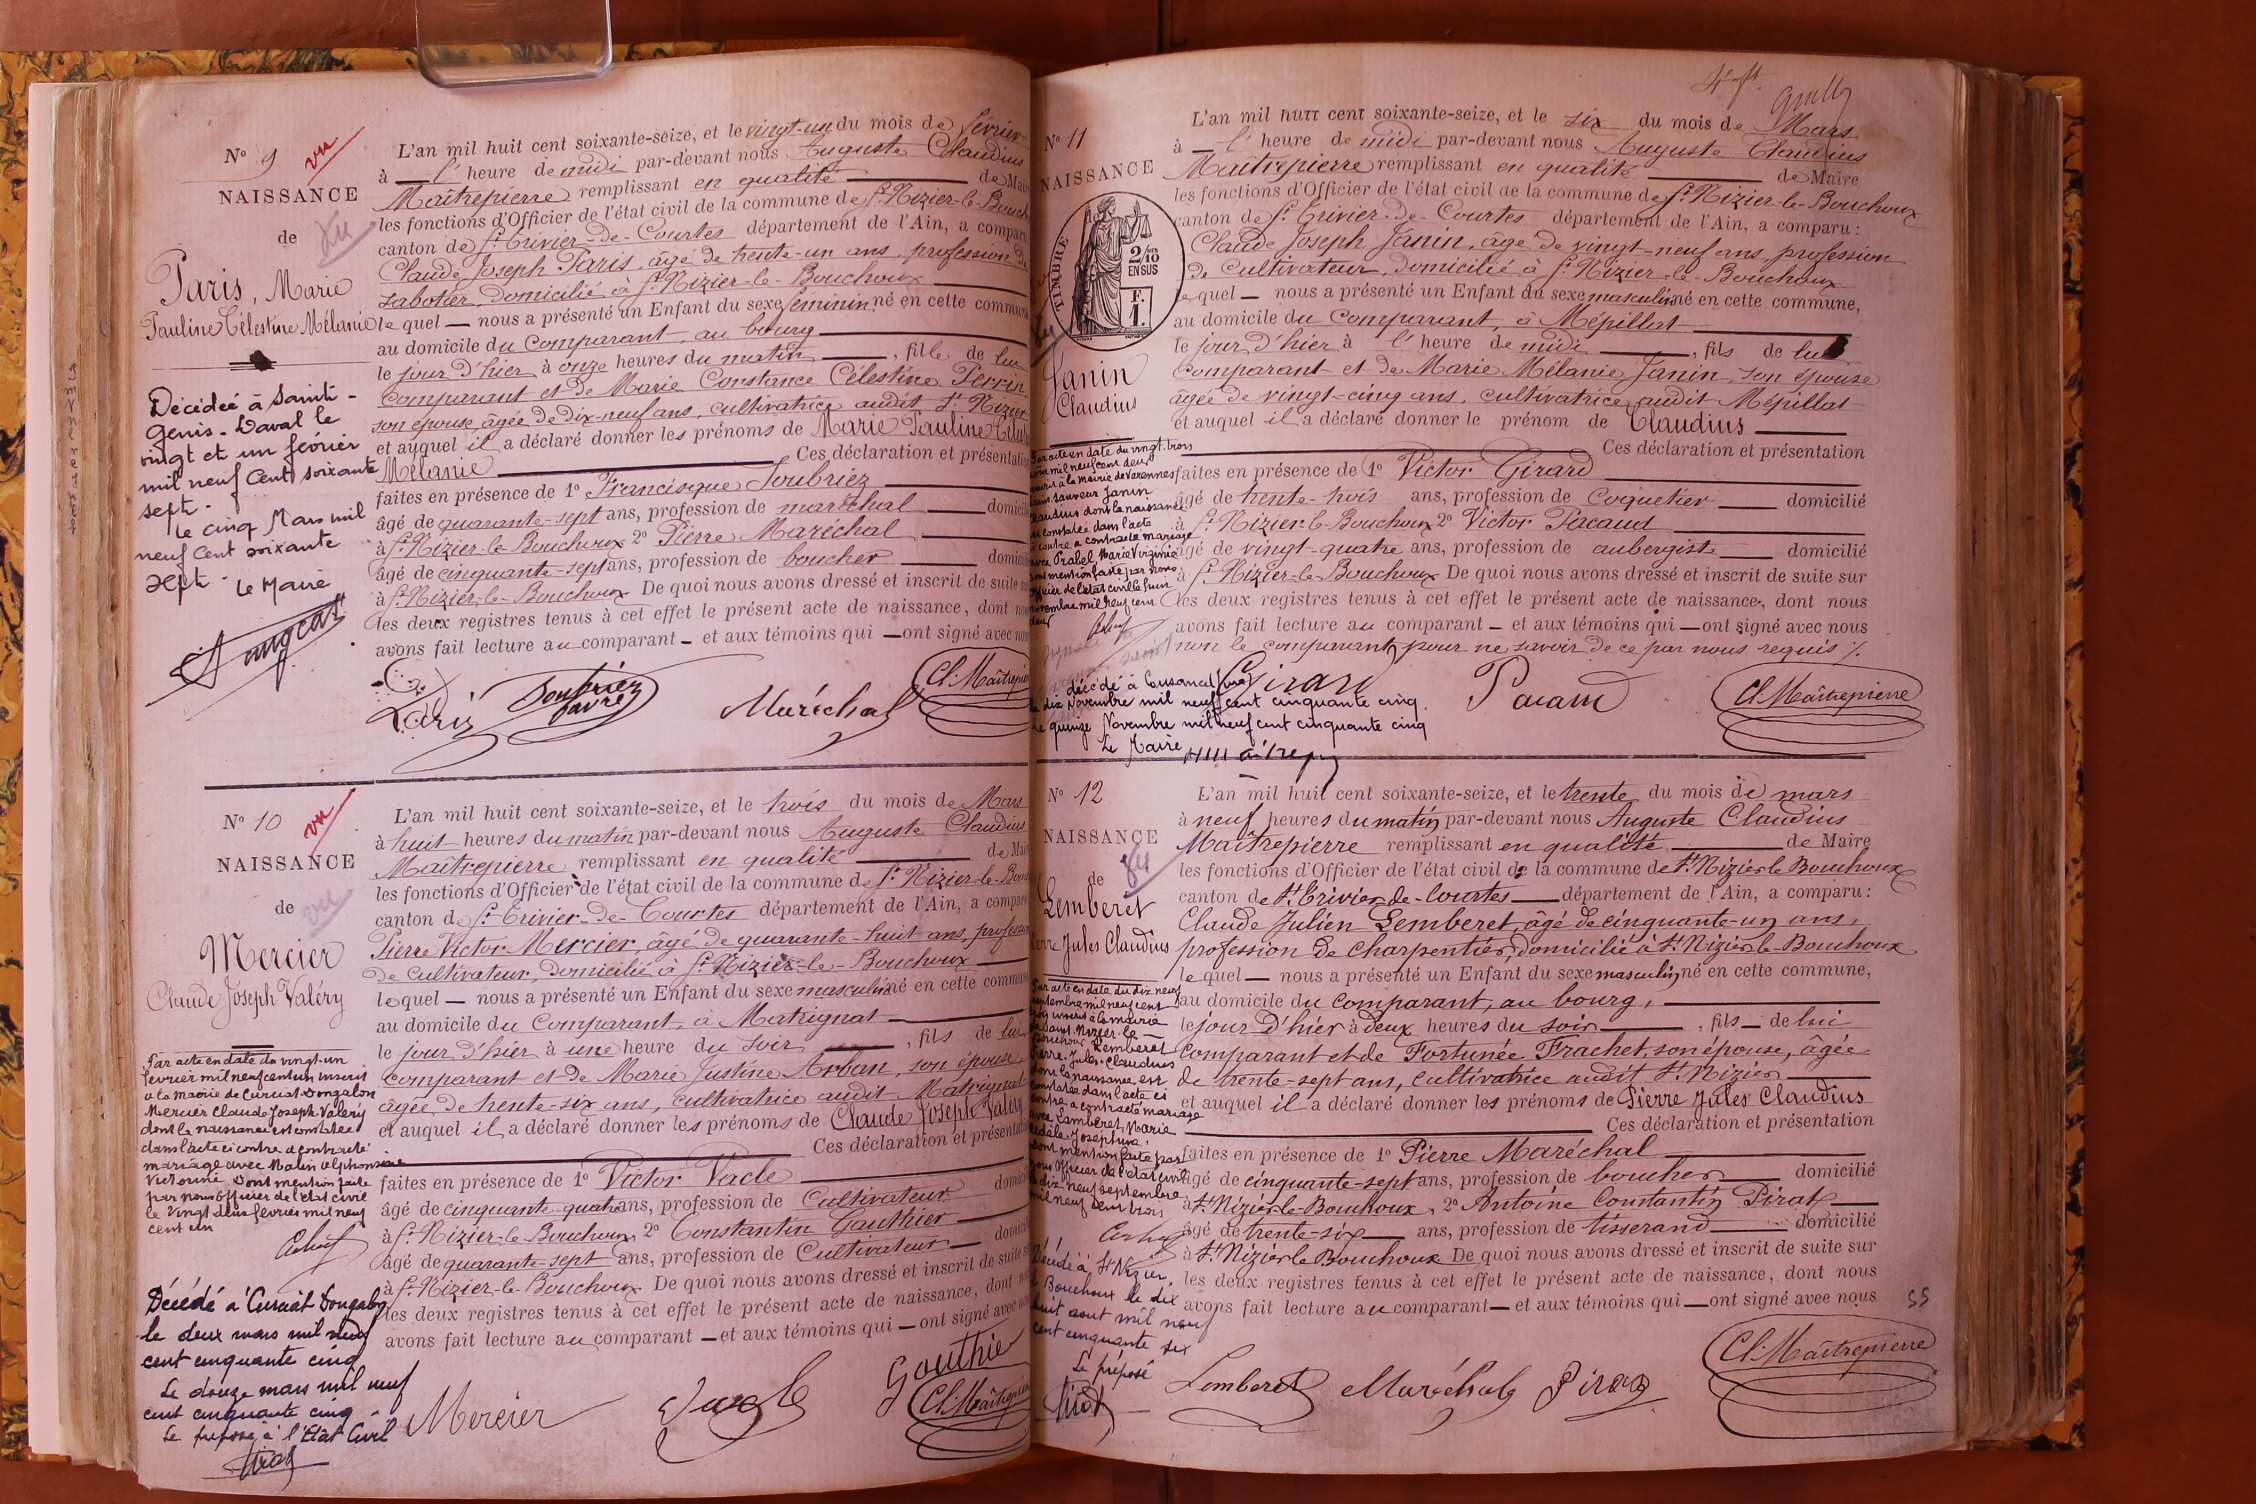 N° 9
vu
NAISSANCE
de
vu
Paris, Marie
Pauline Célestine Mélanie
Décédée à Saint-
Genis-Laval le
vingt et un février
mil neuf Cent soixante
sept.
le cinq Mars mil
neuf Cent soixante
sept. Le Maire
L'an mil huit cent soixante-seize, et le vingt-un du mois de février
à l'heure de midi par-devant nous Auguste Claudius
Maîtrepierre remplissant en qualité de Maire
les fonctions d'Officier de l'état civil de la commune de St. Nizier-le-Bouch
canton de St. Trivier-de-Courtes département de l'Ain, a comparu
Claude Joseph Paris, âgé de trente-un ans, profession de
sabotier, domicilié à St. Nizier-le-Bouchoux
lequel — nous a présenté un Enfant du sexe féminin né en cette commune
au domicile du comparant, au bourg
le jour d'hier à onze heures du matin, fille de lui
comparant et de Marie Constance Célestine Perrin
son épouse, âgée de dix-neuf ans, cultivatrice audit St. Nizier
et auquel il a déclaré donner les prénoms de Marie Pauline Célest
Mélanie Ces déclaration et présentation
faites en présence de 1° Francisque Joubriez
âgé de quarante-sept ans, profession de maréchal domicil
à St. Nizier-le-Bouchoux 2° Pierre Maréchal
âgé de cinquante-sept ans, profession de boucher domicil
à St. Nizier-le-Bouchoux De quoi nous avons dressé et inscrit de suite su
les deux registres tenus à cet effet le présent acte de naissance, dont nou
avons fait lecture au comparant — et aux témoins qui — ont signé avec nous
Paris Maréchal Cl. Maîtrepier
N° 10
vu
NAISSANCE
de
vu
Mercier
Claude Joseph Valéry
Par acte en date du vingt-un
février mil neuf cent un inscrit
à la mairie de Curciat-Dongalon
Mercier Claude Joseph Valéry
dont la naissance est constatée
dans l'acte ci contre a contracté
mariage avec Matin Alphonsine
Victorine. Dont mention faite
par nous officier de l'état civil
le vingt deux février mil neuf
cent un
Décédé à Curciat Dongalon
le deux mars mil neuf
cent cinquante cinq
Le douze mars mil neuf
cent cinquante cinq
Le préposé à l'Etat Civil
L'an mil huit cent soixante-seize, et le trois du mois de Mars
à huit heures du matin par-devant nous Auguste Claudius
Maîtrepierre remplissant en qualité de Mair
les fonctions d'Officier de l'état civil de la commune de St. Nizier-le-Bouc
canton de St. Trivier-de-Courtes département de l'Ain, a comparu
Pierre Victor Mercier, âgé de quarante-huit ans, profession
de cultivateur, domicilié à St. Nizier-le-Bouchoux
lequel — nous a présenté un Enfant du sexe masculin né en cette commune
au domicile du comparant, à Matrignat
le jour d'hier à une heure du soir, fils de lui
comparant et de Marie Justine Arban, son épouse
âgée de trente-six ans, cultivatrice audit Matrignat
et auquel il a déclaré donner les prénoms de Claude Joseph Valéry
Ces déclaration et présentation
faites en présence de 1° Victor Vacle
âgé de cinquante-quatre ans, profession de Cultivateur domicil
à St. Nizier-le-Bouchoux 2° Constantin Gauthier
âgé de quarante-sept ans, profession de Cultivateur domicil
à St. Nizier-le-Bouchoux De quoi nous avons dressé et inscrit de suite su
les deux registres tenus à cet effet le présent acte de naissance, dont no
avons fait lecture au comparant — et aux témoins qui — ont signé avec nous
Mercier Vacle Gouthie
Cl. Maîtrepier
N° 11
NAISSANCE
TIMBRE
2/10
EN SUS
F.
1.
Janin
Claudius
Par acte en date du vingt-trois
mil neuf cent deux
inscrit à la mairie de Varennes
Saint Sauveur Janin
Claudius dont la naissance
est constatée dans l'acte
ci contre a contracté mariage
avec Prabel Marie Virginie
Dont mention faite par nous
officier de l'état civil le huit
novembre mil neuf cent
deux
décédé à Cuisance (Jura)
le dix Novembre mil neuf cent cinquante cinq.
Le quinze Novembre mil neuf cent cinquante cinq
Le Maire
L'an mil huit cent soixante-seize, et le six du mois de Mars
à l'heure de midi par-devant nous Auguste Claudius
Maîtrepierre remplissant en qualité de Maire
les fonctions d'Officier de l'état civil de la commune de St. Nizier-le-Bouchoux
canton de St. Trivier-de-Courtes département de l'Ain, a comparu:
Claude Joseph Janin, âgé de vingt-neuf ans, profession
de Cultivateur, domicilié à St. Nizier-le-Bouchoux
lequel — nous a présenté un Enfant du sexe masculin né en cette commune,
au domicile du comparant, à Mépillat
le jour d'hier à l'heure de midi, fils de lui
comparant et de Marie Mélanie Janin, son épouse
âgée de vingt-cinq ans, cultivatrice audit Mépillat
et auquel il a déclaré donner le prénom de Claudius
Ces déclaration et présentation
faites en présence de 1° Victor Girard
âgé de trente-trois ans, profession de Coquetier domicilié
à St. Nizier-le-Bouchoux 2° Victor Pacaud
âgé de vingt-quatre ans, profession de aubergiste domicilié
à St. Nizier-le-Bouchoux De quoi nous avons dressé et inscrit de suite sur
les deux registres tenus à cet effet le présent acte de naissance, dont nous
avons fait lecture au comparant — et aux témoins qui — ont signé avec nous
non le comparant pour ne savoir de ce par nous requis %.
Girard Pacaud Cl. Maîtrepierre
N° 12
NAISSANCE
de
vu
Lemberet
Pierre Jules Claudius
Par acte en date du dix neuf
septembre mil neuf cent
trois inscrit à la mairie
de Saint-Nizier-le-
Bouchoux Lemberet
Pierre-Jules-Claudius
dont la naissance est
constatée dans l'acte ci
contre a contracté mariage
avec Lamberet Marie
Adèle Josephine.
Dont mention faite par
nous Officier de l'état civil
le dix neuf septembre
mil neuf cent trois
Décédé à St Nizier
le Bouchoux le dix
huit aout mil neuf
cent cinquante six
Le préposé
L'an mil huit cent soixante-seize, et le trente du mois de mars
à neuf heures du matin par-devant nous Auguste Claudius
Maîtrepierre remplissant en qualité de Maire
les fonctions d'Officier de l'état civil de la commune de St. Nizier le Bouchoux
canton de St. Trivier-de-Courtes département de l'Ain, a comparu:
Claude Julien Lemberet, âgé de cinquante-un ans,
profession de charpentier, domicilié à St. Nizier le Bouchoux
lequel — nous a présenté un Enfant du sexe masculin, né en cette commune,
au domicile du comparant, au bourg,
le jour d'hier à deux heures du soir, fils — de lui
comparant et de Fortunée Frachet, son épouse, âgée
de trente-sept ans, cultivatrice audit St. Nizier
et auquel il a déclaré donner les prénoms de Pierre Jules Claudius
Ces déclaration et présentation
faites en présence de 1° Pierre Maréchal
âgé de cinquante-sept ans, profession de boucher domicilié
à St. Nizier-le-Bouchoux, 2° Antoine Constantin Pirat
âgé de trente-six ans, profession de tisserand domicilié
à St. Nizier le Bouchoux De quoi nous avons dressé et inscrit de suite sur
les deux registres tenus à cet effet le présent acte de naissance, dont nous
avons fait lecture au comparant — et aux témoins qui — ont signé avec nous
55
Lemberet Maréchal Pirat Cl. Maîtrepierre